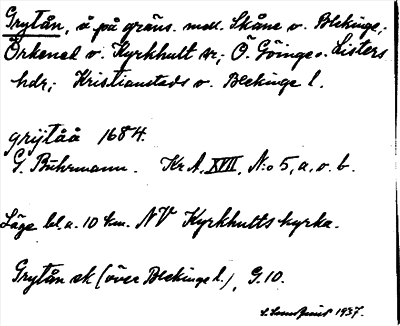 Grytån, å på gräns. mell. Skåne o. Blekinge;
Örkened o. Kyrkhult sn; Ö. Göinge o. Listers
hdr; Kristianstads o. Blekinge l.
grijtåå 1684.
G. Buhrmann. Kr.A. XVII, N:o 5, a. o. b.
Läge bl.a. 10 km. NV Kyrkhults kyrka.
Grytån ek (över Blekinge l.), G.10.
1937.